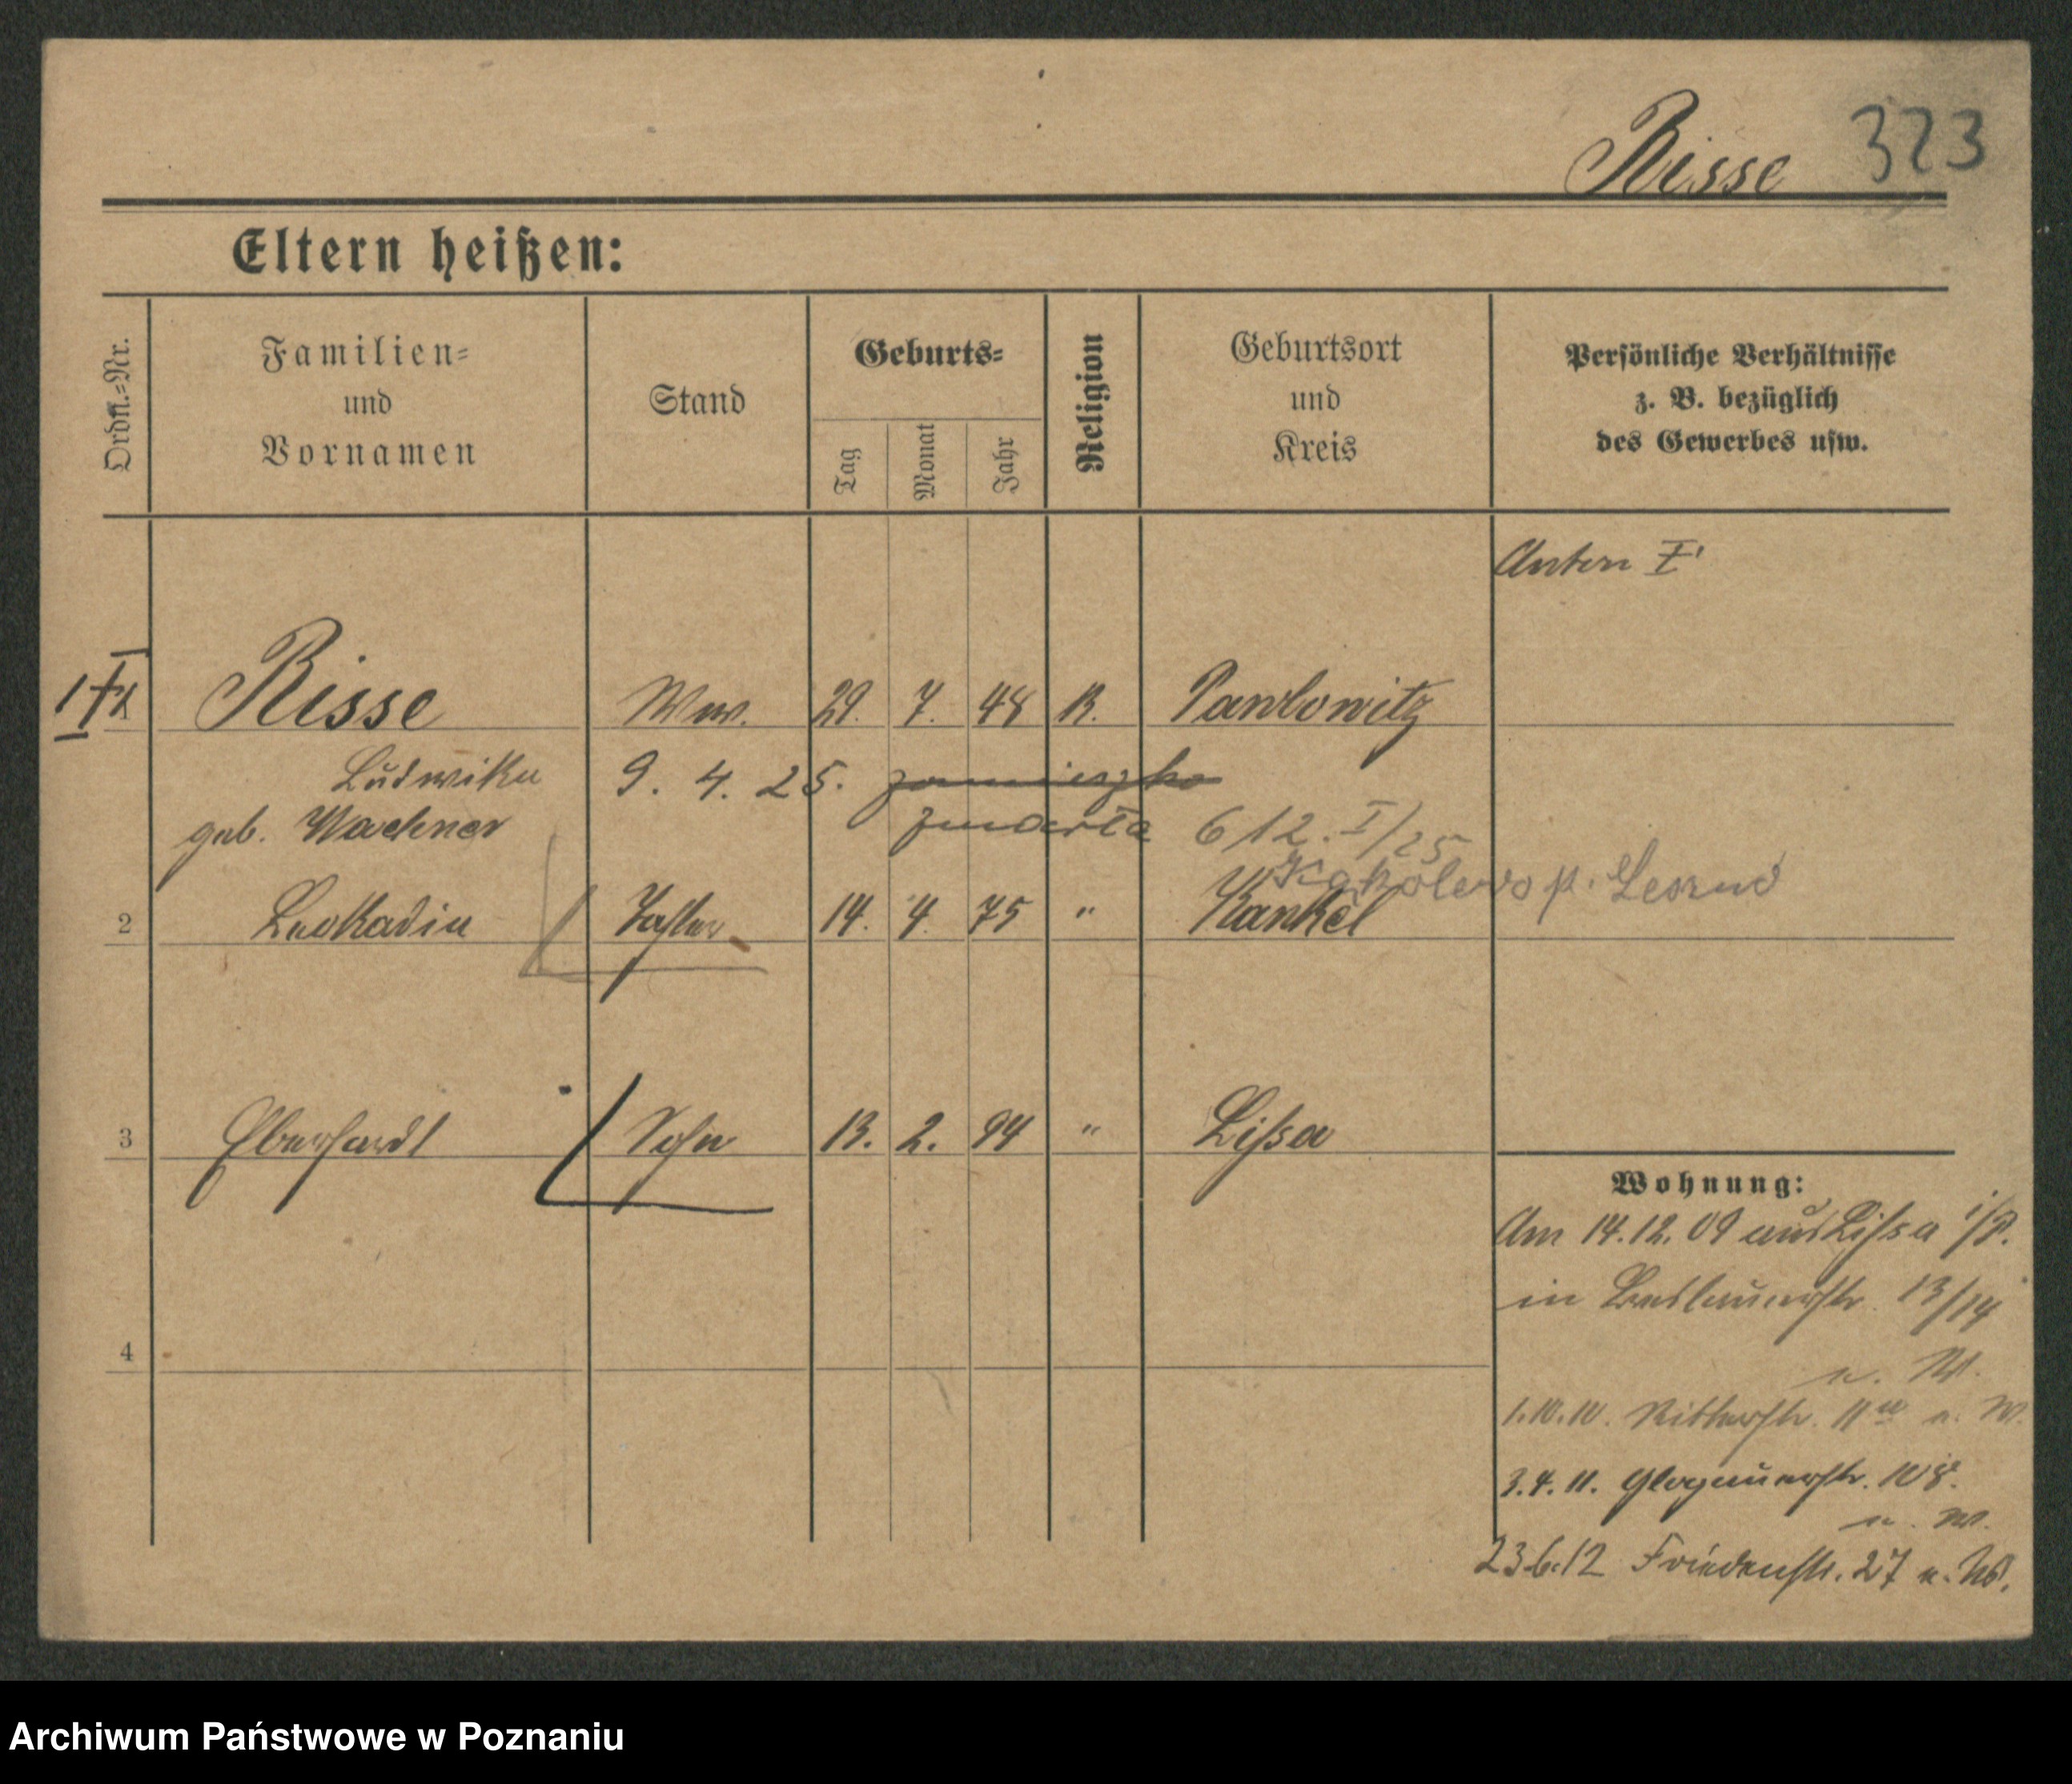 Risse 323
Eltern heißen:
Ordn.=Nr.
Familien=
und
Vornamen
Stand
Geburts=
Tag
Monat
Jahr
Religion
Geburtsort
und
Kreis
Persönliche Verhältnisse
z. B. bezüglich
des Gewerbes usw.
Anton I
1 Risse Ww. 29. 7. 48 K. Pawlowitz
Ludwika 9. 4. 25. zamieszka
geb. Wachner zmarła 6/12. I/25
Kąkolewo p. Leszno
2 Leokadia Tochter 14. 4. 75 " Kankel
3 Eberhardt Sohn 13. 2. 94 " Lissa
4
Wohnung:
Am 14.12.09 aus Lissa i/P.
in Breslauerstr. 13/14
n. W.
1.10.10. Ritterstr. 11 n. W.
3.4.11. Glogauerstr. 108.
n. W.
23.6.12 Friedenstr. 27 n. W.
Archiwum Państwowe w Poznaniu